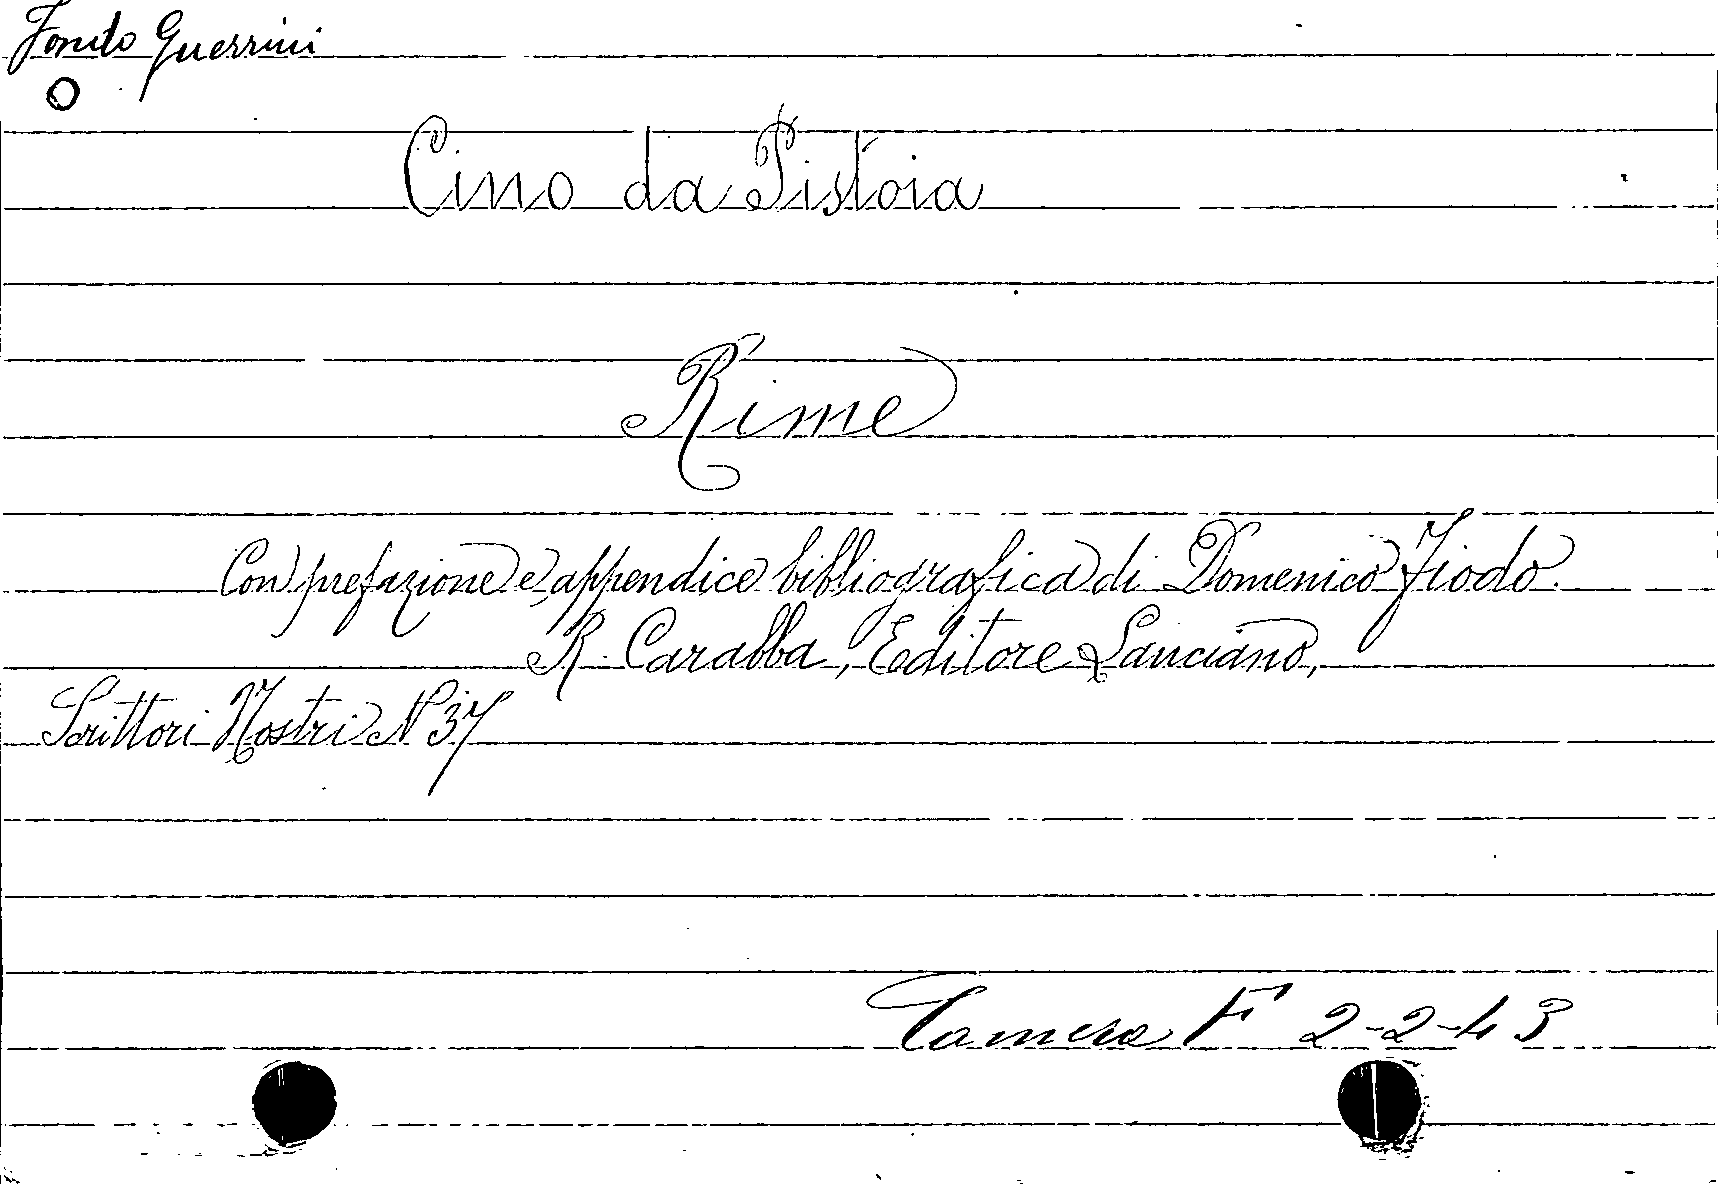 Fondo Guerrini
Cino da Pistoia
Rime
Con prefazione e appendice bibliografica di Domenico Fiodo.
R. Carabba, Editore Lanciano,
Scrittori Nostri N 37
Camera F 2-2-43